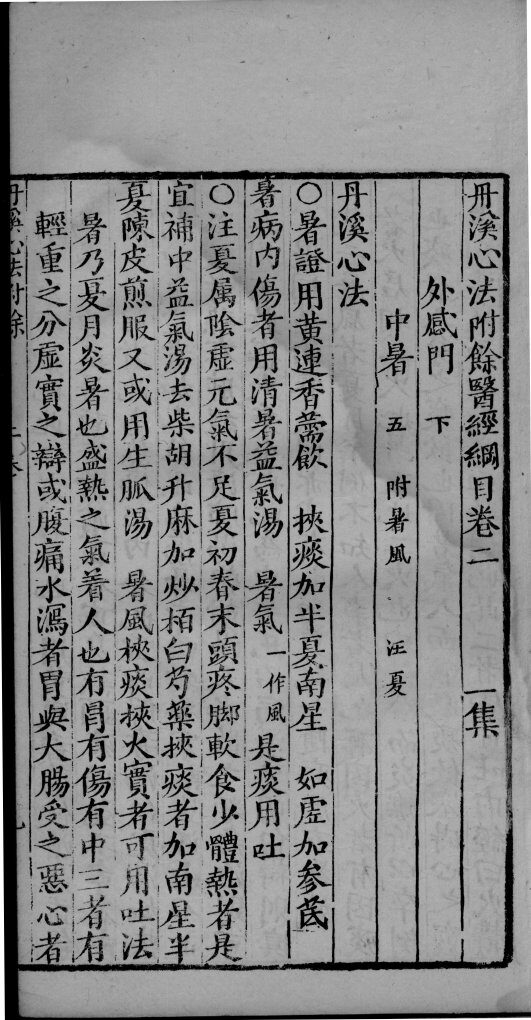 丹溪心法附餘醫經綱目卷二 一集
外感門 下
中暑 五 附暑風 注夏
丹溪心法
○暑證用黃連香薷飲 挾痰加半夏南星 如虛加參芪
暑病內傷者用清暑益氣湯 暑氣一作風是痰用吐
○注夏属陰虛元氣不足夏初春末頭疼脚軟食少體熱者是
宜補中益氣湯去柴胡升麻加炒栢白芍藥挾痰者加南星半
夏陳皮煎服又或用生脈湯 暑風挾痰挾火實者可用吐法
暑乃夏月炎暑也盛熱之氣着人也有冐有傷有中三者有
輕重之分虛實之辯或腹痛水瀉者胃與大腸受之惡心者
丹溪心法附餘